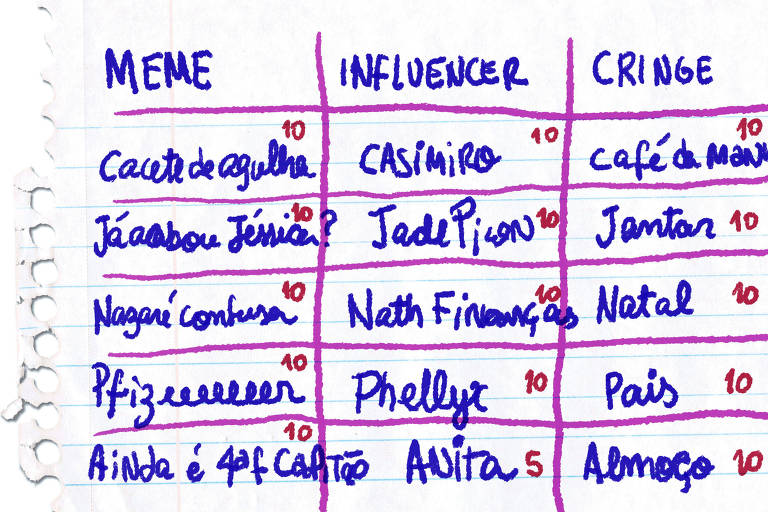 MEME INFLUENCER CRINGE
Cacete de agulha 10 CASIMIRO 10 Café da MANH 10
Já acabou Jéssica? 10 Jade Picon 10 Jantar 10
Nazaré confusa 10 Nath Finanças 10 Natal 10
Pfizeeeeeeer 10 Phellyx 10 Pais 10
Ainda é 4ªf CAPITÃO 10 ANitta 5 Almoço 10